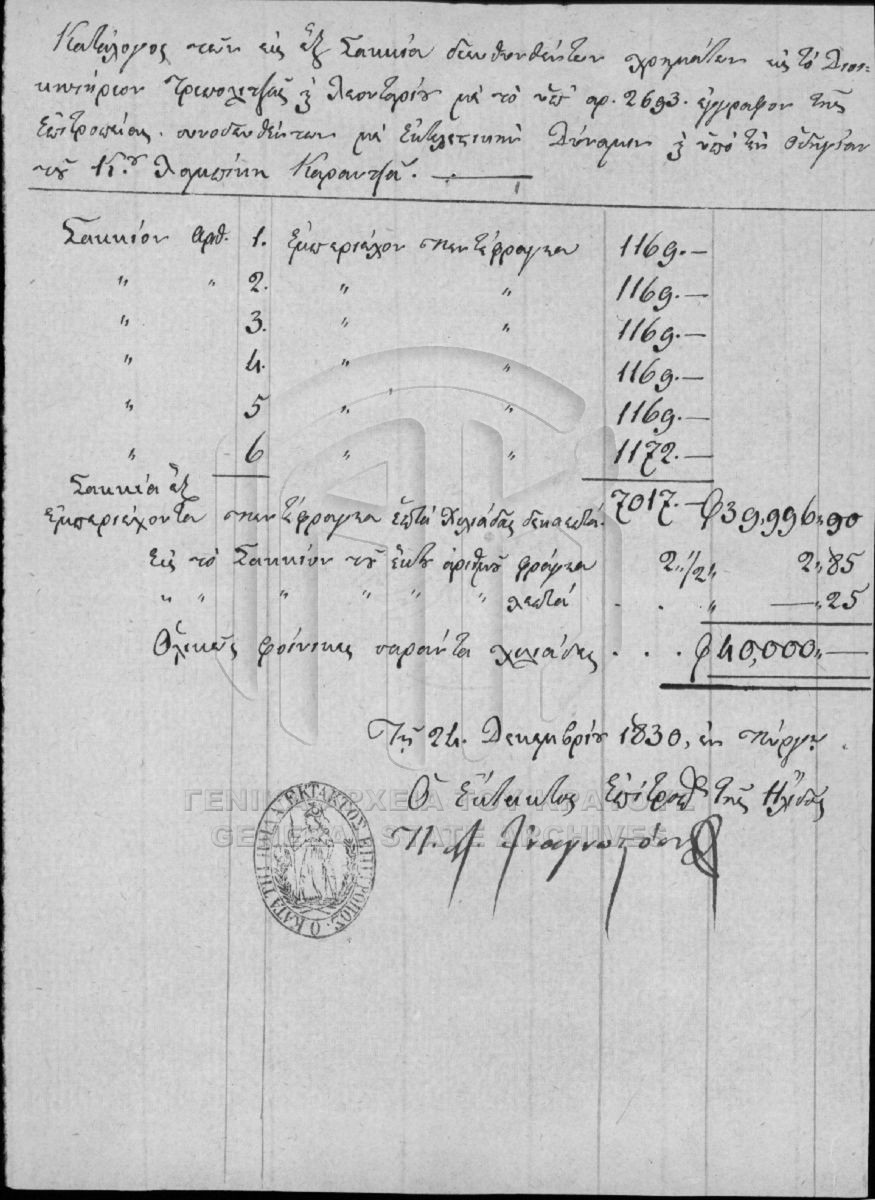 Κατάλογος τῶν εἰς ἓξ Σακκία διευθυνθέντων χρημάτων εἰς τὸ Διοι-
κητήριον Τριπολιτζᾶς ϗ Λεονταρίου μὲ τὸ ὑπ' ἀρ. 2693. ἔγγραφον τῆς
Ἐπιτροπείας. συνοδευθέντων μὲ Ἐκτελεστικὴν Δύναμιν ϗ ὑπὸ τὴν ὁδηγίαν
τοῦ Κ.ου Λαμπίκη Καραντζᾶ.
Σακκίον Ἀρθ. 1. ἐμπεριέχον πεντέφραγκα 1169.—
" " 2. " " 1169.—
" 3. " " 1169.—
" 4. " " 1169.—
" 5 " " 1169.—
" 6 " " 1172.—
Σακκία ἓξ
ἐμπεριέχοντα πεντέφραγκα ἑπτὰ χιλιάδας δεκαεπτά. 7017.— φ 39,996,,90
Εἰς τὸ Σακκίον τοῦ ἕκτου ἀριθμοῦ φράγκα 2,,1/2,, 2,,85
" " " " " " λεπτά . . " —,,25
Ὁλικῶς φοίνικες σαράντα χιλιάδες . . . φ 40,000,,—
Τῇ 24. Δεκεμβρίου 1830, ἐν Πύργῳ.
Ὁ Ἔκτακτος Ἐπίτροπος τῆς Ἤλιδος
Π. Α. Ἀναγνωστόπουλος
Ο ΚΑΤΑ ΤΗΝ ΗΛΙΔΑ ΕΚΤΑΚΤΟΣ ΕΠΙΤΡΟΠΟΣ.
ΓΕΝΙΚΑ ΑΡΧΕΙΑ ΤΟΥ ΚΡΑΤΟΥΣ
GENERAL STATE ARCHIVES